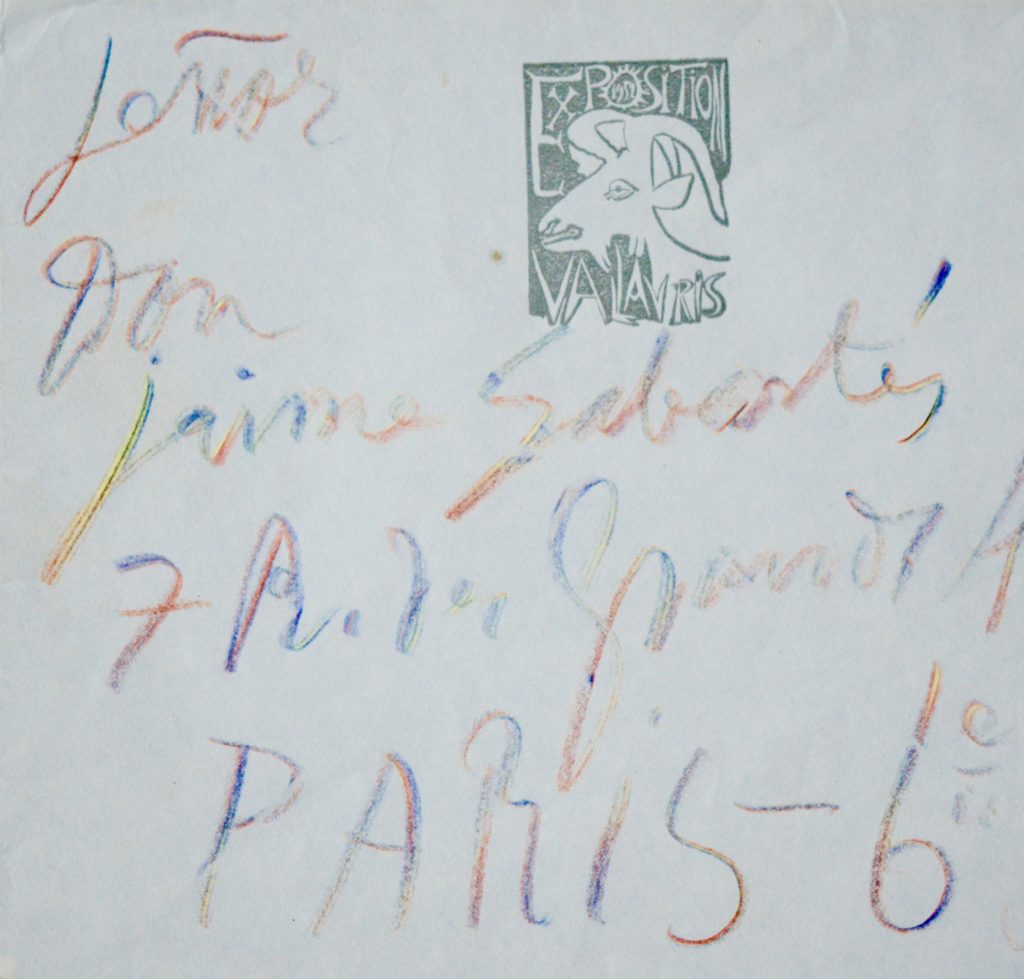 Señor
EXPOSITION
1952
VALLAURIS
Don
jaime Sabartés
7 R. des Grands A
PARIS - 6e